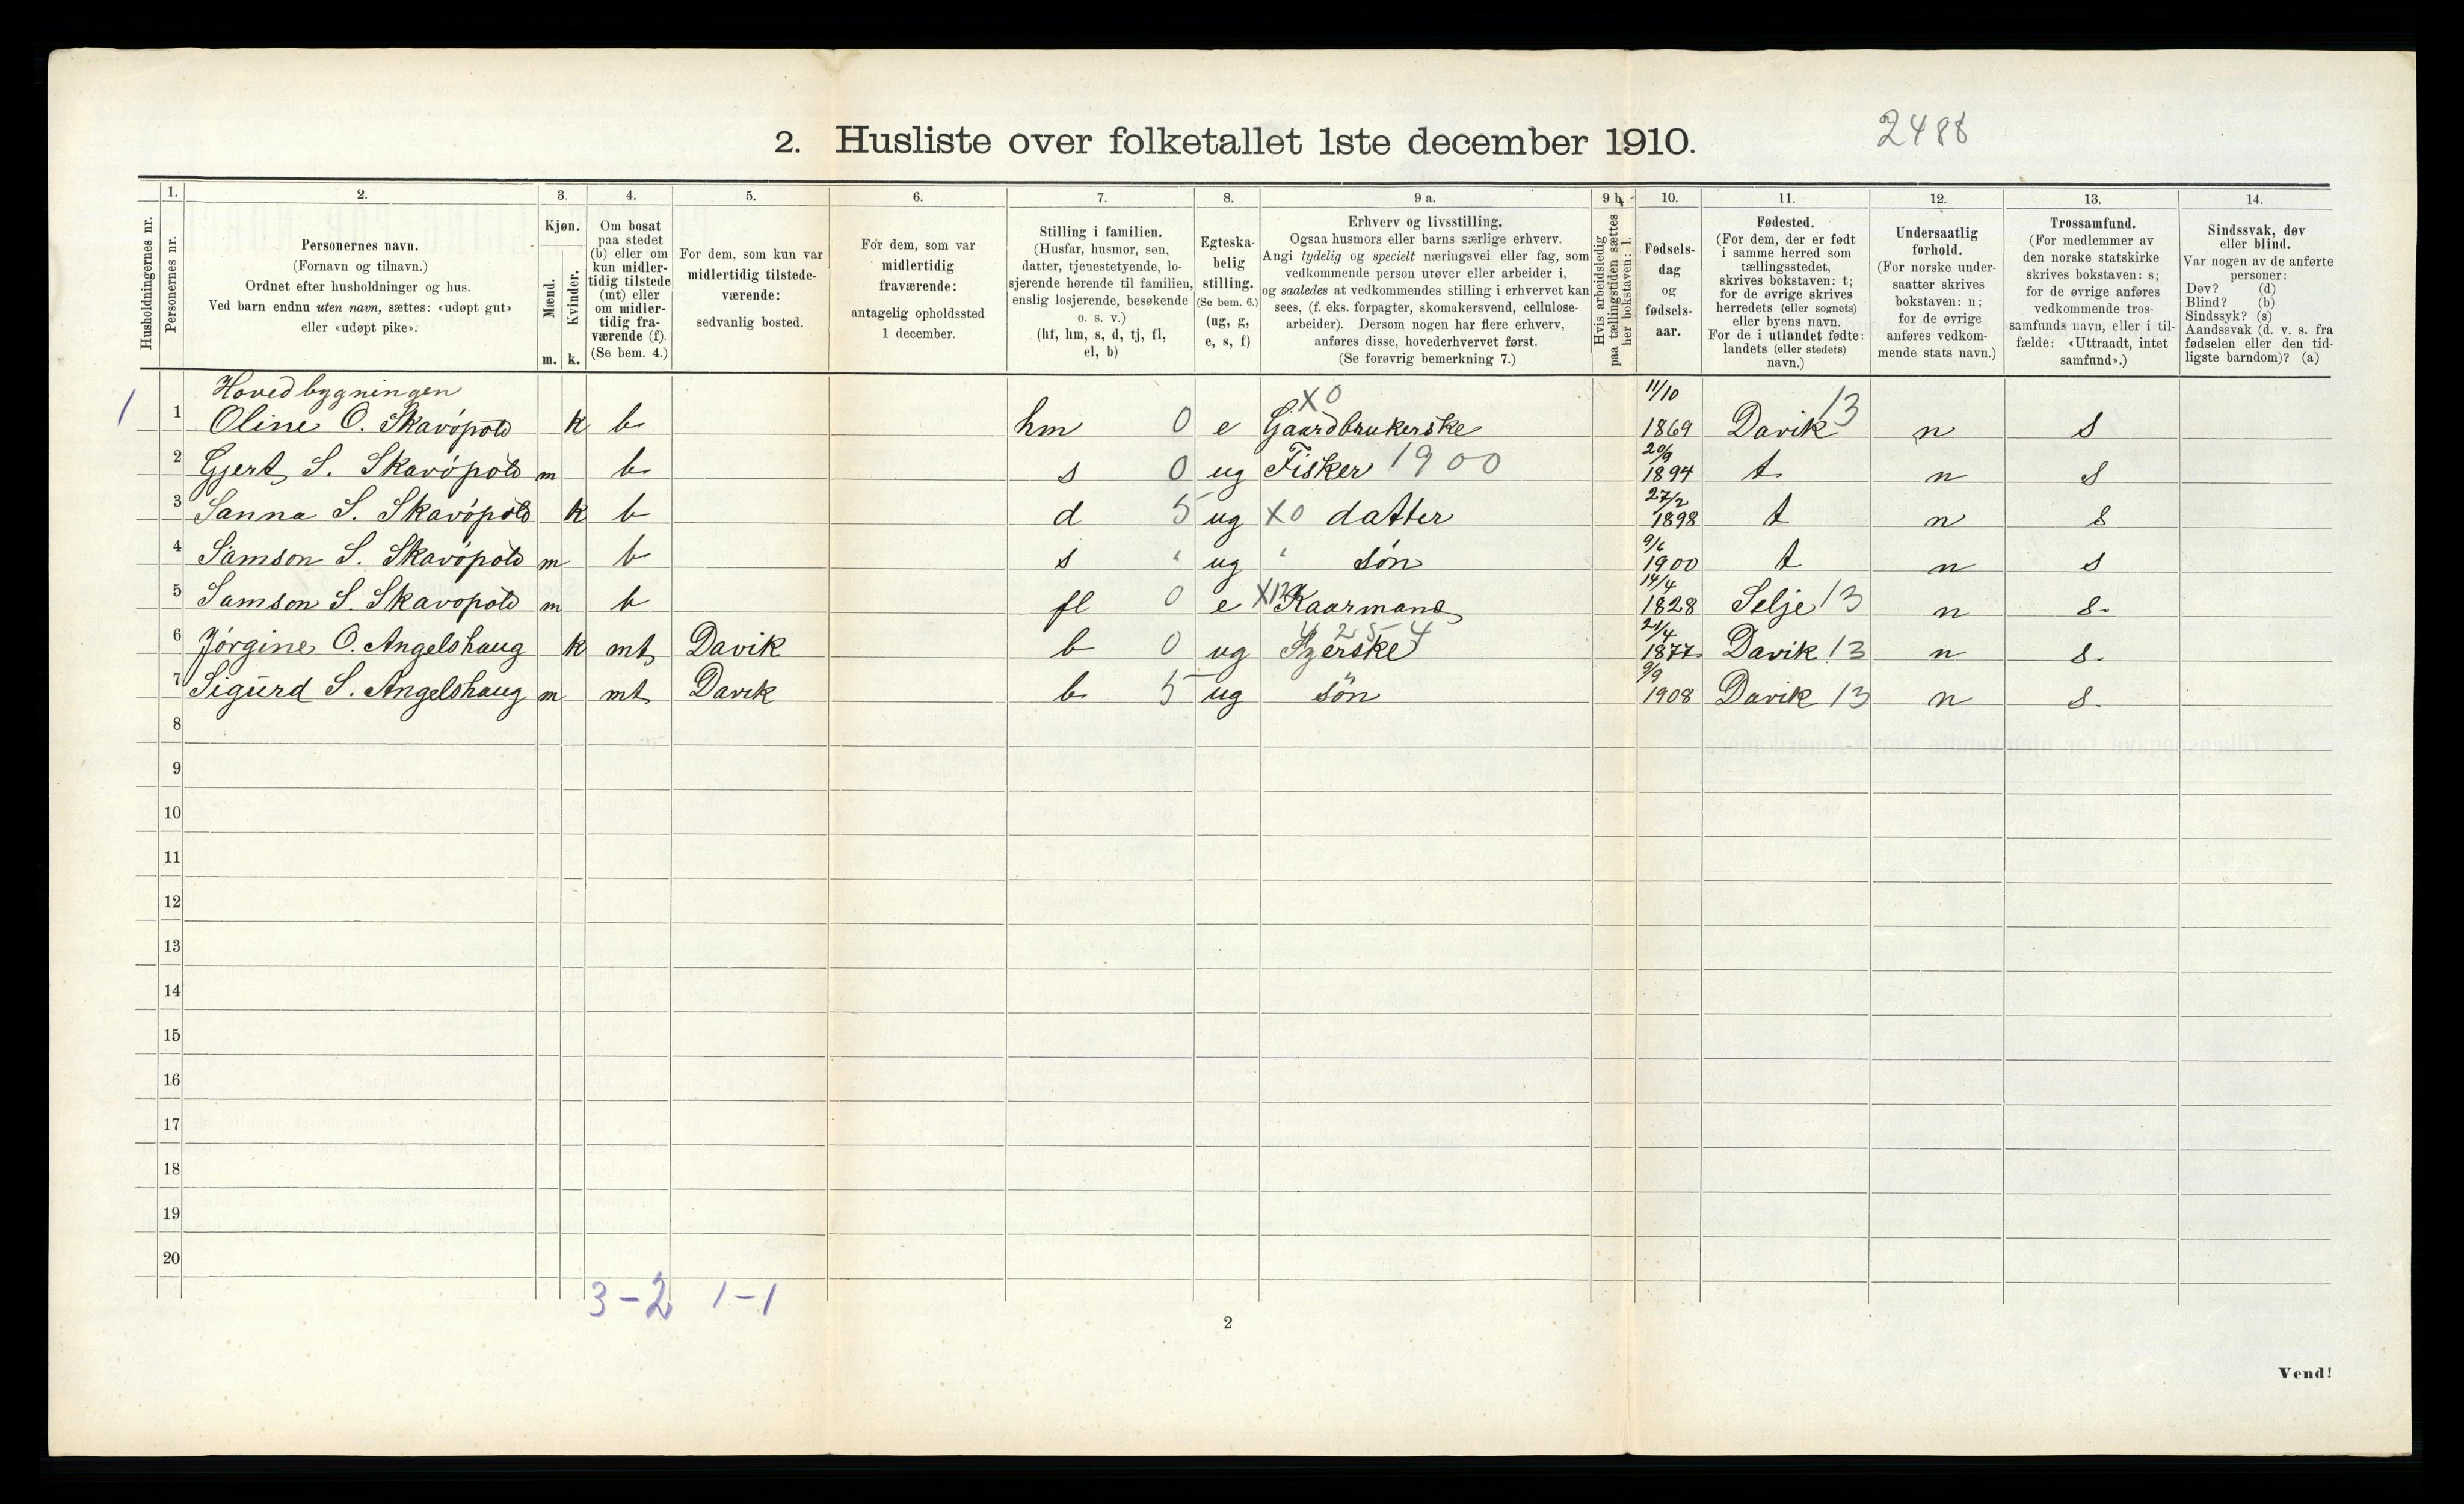 2488
2. Husliste over folketallet 1ste december 1910.
Husholdningernes nr.
1.
Personernes nr.
2.
Personernes navn.
(Fornavn og tilnavn.)
Ordnet efter husholdninger og hus.
Ved barn endnu uten navn, sættes: «udøpt gut»
eller «udøpt pike».
3.
Kjøn.
Mænd.
Kvinder.
m. k.
4.
Om bosat
paa stedet
(b) eller om
kun midler-
tidig tilstede
(mt) eller
om midler-
tidig fra-
værende (f).
(Se bem. 4.)
5.
For dem, som kun var
midlertidig tilstede-
værende:
sedvanlig bosted.
6.
For dem, som var
midlertidig
fraværende:
antagelig opholdssted
1 december.
7.
Stilling i familien.
(Husfar, husmor, søn,
datter, tjenestetyende, lo-
sjerende hørende til familien,
enslig losjerende, besøkende
o. s. v.)
(hf, hm, s, d, tj, fl,
el, b)
8.
Egteska-
belig
stilling.
(Se bem. 6.)
(ug, g,
e, s, f)
9 a.
Erhverv og livsstilling.
Ogsaa husmors eller barns særlige erhverv.
Angi tydelig og specielt næringsvei eller fag, som
vedkommende person utøver eller arbeider i,
og saaledes at vedkommendes stilling i erhvervet kan
sees, (f. eks. forpagter, skomakersvend, cellulose-
arbeider). Dersom nogen har flere erhverv,
anføres disse, hovederhvervet først.
(Se forøvrig bemerkning 7.)
9 b.
Hvis arbeidsledig
paa tællingstiden sættes
her bokstaven: l.
10.
Fødsels-
dag
og
fødsels-
aar.
11.
Fødested.
(For dem, der er født
i samme herred som
tællingsstedet,
skrives bokstaven: t;
for de øvrige skrives
herredets (eller sognets)
eller byens navn.
For de i utlandet fødte:
landets (eller stedets)
navn.)
12.
Undersaatlig
forhold.
(For norske under-
saatter skrives
bokstaven: n;
for de øvrige
anføres vedkom-
mende stats navn.)
13.
Trossamfund.
(For medlemmer av
den norske statskirke
skrives bokstaven: s;
for de øvrige anføres
vedkommende tros-
samfunds navn, eller i til-
fælde: «Uttraadt, intet
samfund».)
14.
Sindssvak, døv
eller blind.
Var nogen av de anførte
personer:
Døv? (d)
Blind? (b)
Sindssyk? (s)
Aandssvak (d. v. s. fra
fødselen eller den tid-
ligste barndom)? (a)
Hovedbygningen
1 1 Oline O. Skavöpold k b hm 0 e X0 Gaardbrukerske 11/10 1869 Davik 13 n s
2 Gjert S. Skavöpold m b s 0 ug Fisker 1900 20/9 1894 t n s
3 Sanna S. Skavöpold k b d 5 ug X0 datter 27/2 1898 t n s
4 Samson S. Skavöpold m b s " ug " sön 9/6 1900 t n s
5 Samson S. Skavopold m b fl 0 e Kaarmand 14/4 1828 Selje 13 n s.
6 Jörgine O. Angelshaug k mt Davik b 0 ug 21/4 1877 Davik 13 n s.
7 Sigurd S. Angelshaug m mt Davik b 5 ug sön 9/9 1908 Davik 13 n s.
8
9
10
11
12
13
14
15
16
17
18
19
20
3-2 1-1
2
Vend!